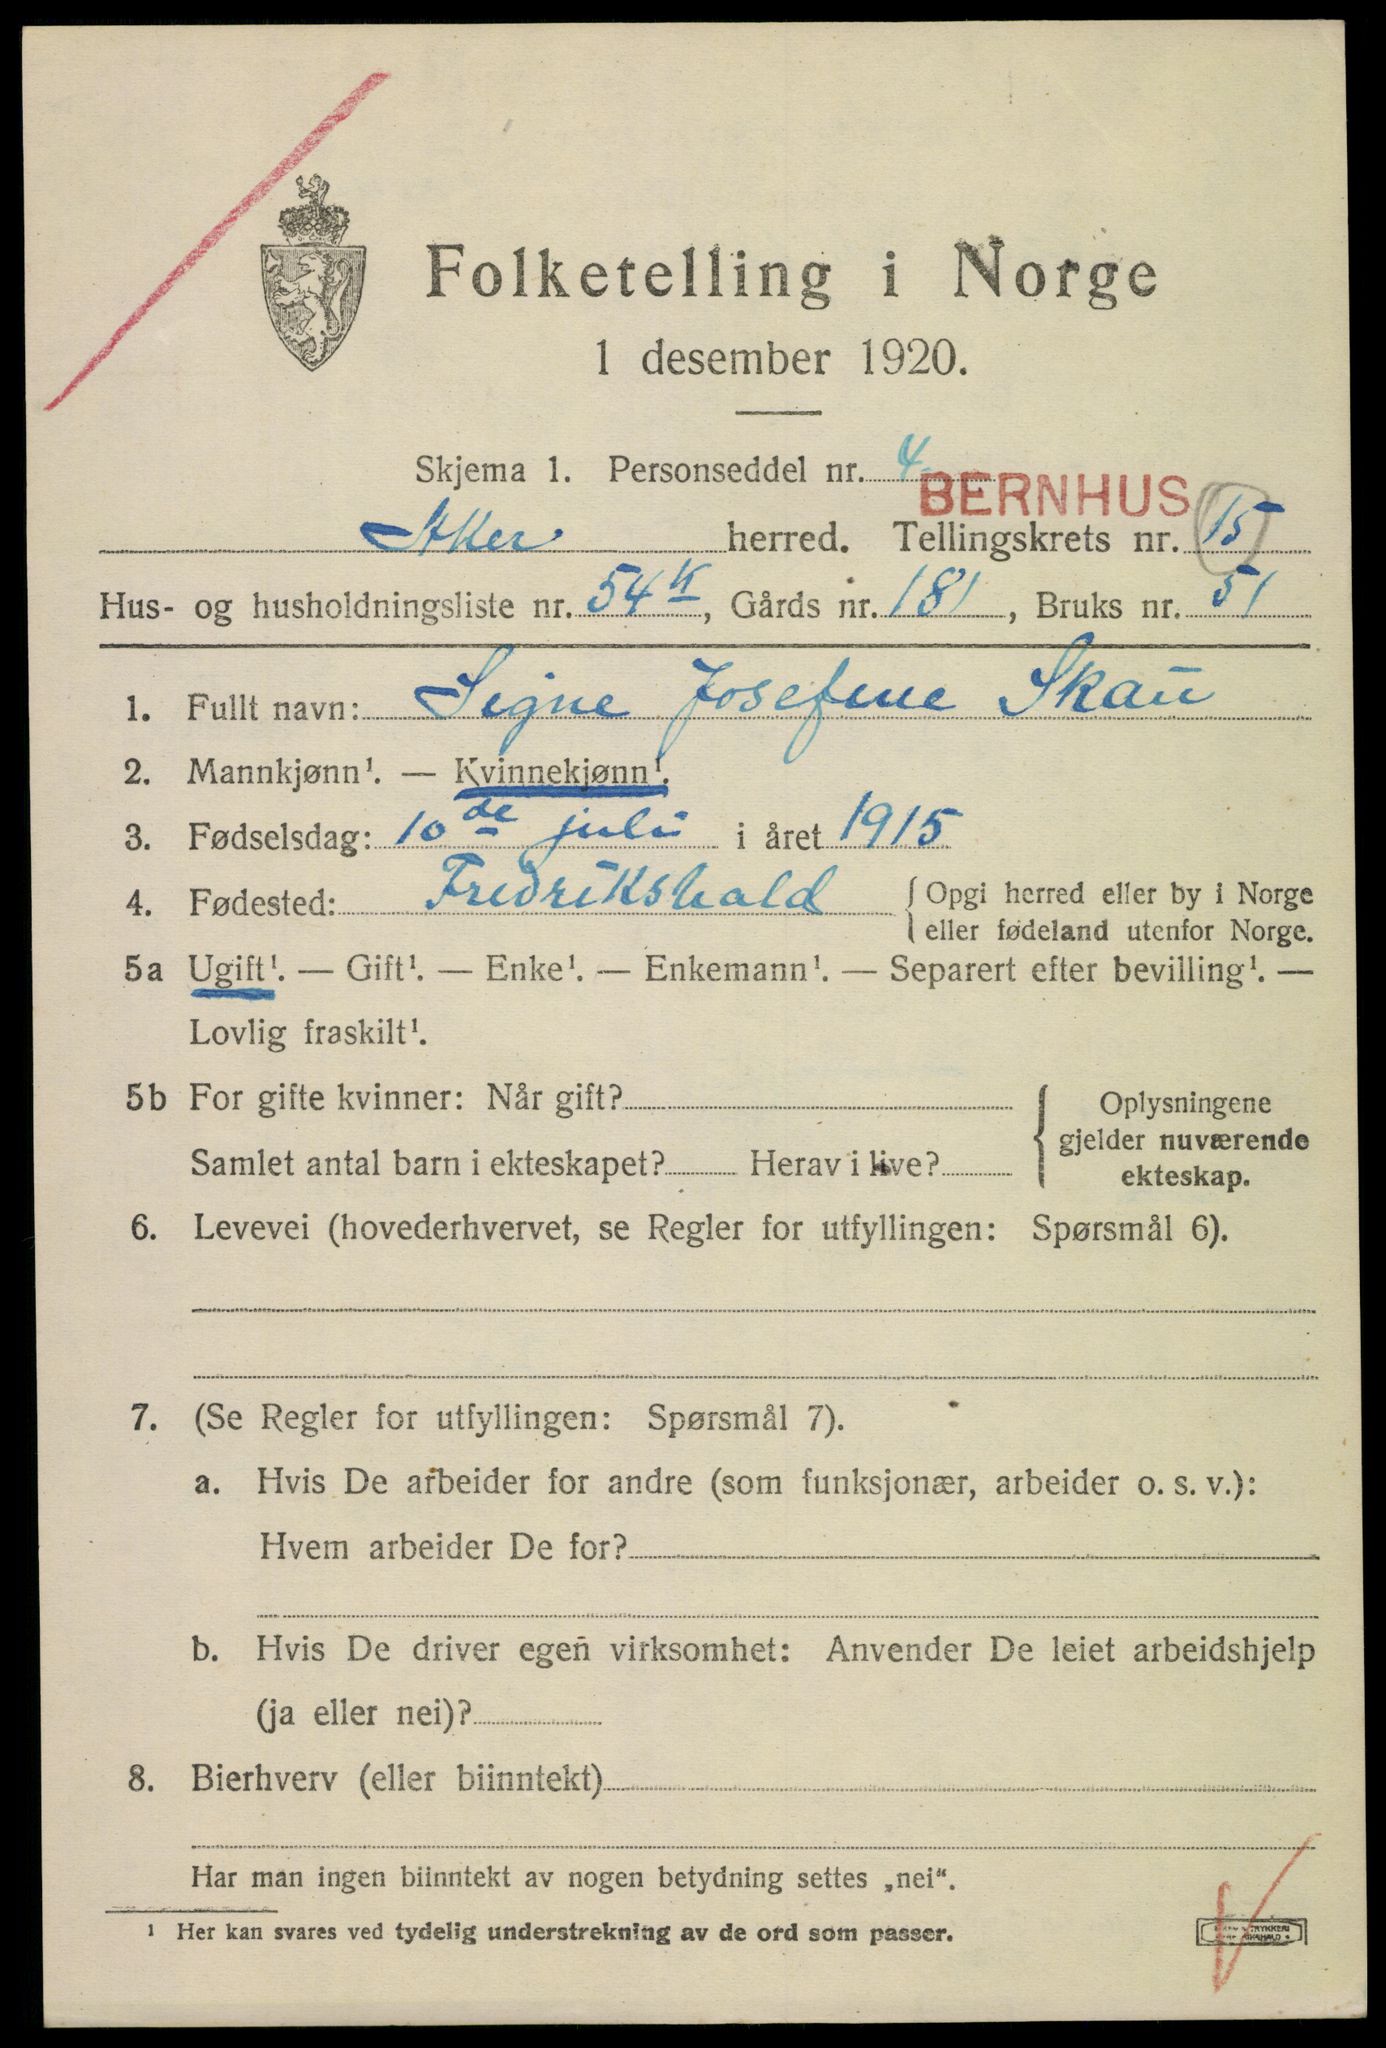 Folketelling i Norge
1 desember 1920.
Skjema 1. Personseddel nr. 4
BERNHUS
Aker herred. Tellingskrets nr. 15
Hus- og husholdningsliste nr. 54 K, Gårds nr. 181, Bruks nr. 51
1. Fullt navn: Signe Josefine Skau
2. Mannkjønn¹. — Kvinnekjønn¹.
3. Fødselsdag: 10de juli i året 1915
4. Fødested: Fredrikshald { Opgi herred eller by i Norge
eller fødeland utenfor Norge.
5a Ugift¹. — Gift¹. — Enke¹. — Enkemann¹. — Separert efter bevilling¹. —
Lovlig fraskilt¹.
5b For gifte kvinner: Når gift? { Oplysningene
gjelder nuværende
Samlet antal barn i ekteskapet? Herav i live?
ekteskap.
6. Levevei (hovederhvervet, se Regler for utfyllingen: Spørsmål 6).
7. (Se Regler for utfyllingen: Spørsmål 7).
a. Hvis De arbeider for andre (som funksjonær, arbeider o. s. v.):
Hvem arbeider De for?
b. Hvis De driver egen virksomhet: Anvender De leiet arbeidshjelp
(ja eller nei)?
8. Bierhverv (eller biinntekt)
Har man ingen biinntekt av nogen betydning settes „nei“.
¹ Her kan svares ved tydelig understrekning av de ord som passer.